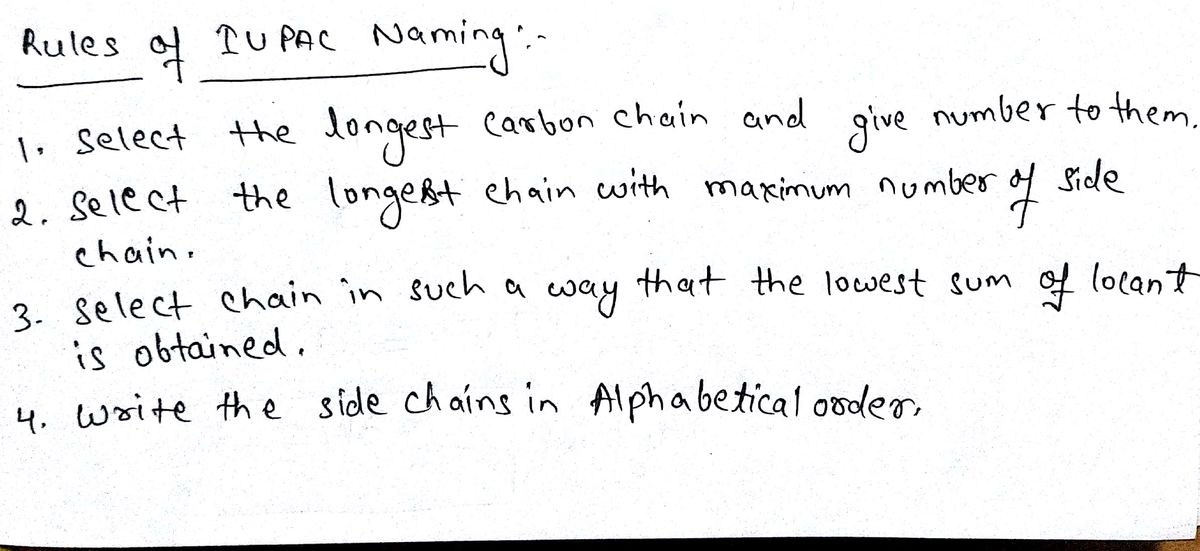 Rules of IUPAC Naming :-
1. Select the longest carbon chain and give number to them.
2. Select the longest chain with maximum number of side
chain.
3. Select chain in such a way that the lowest sum of locant
is obtained.
4. Write the side chains in Alphabetical order.